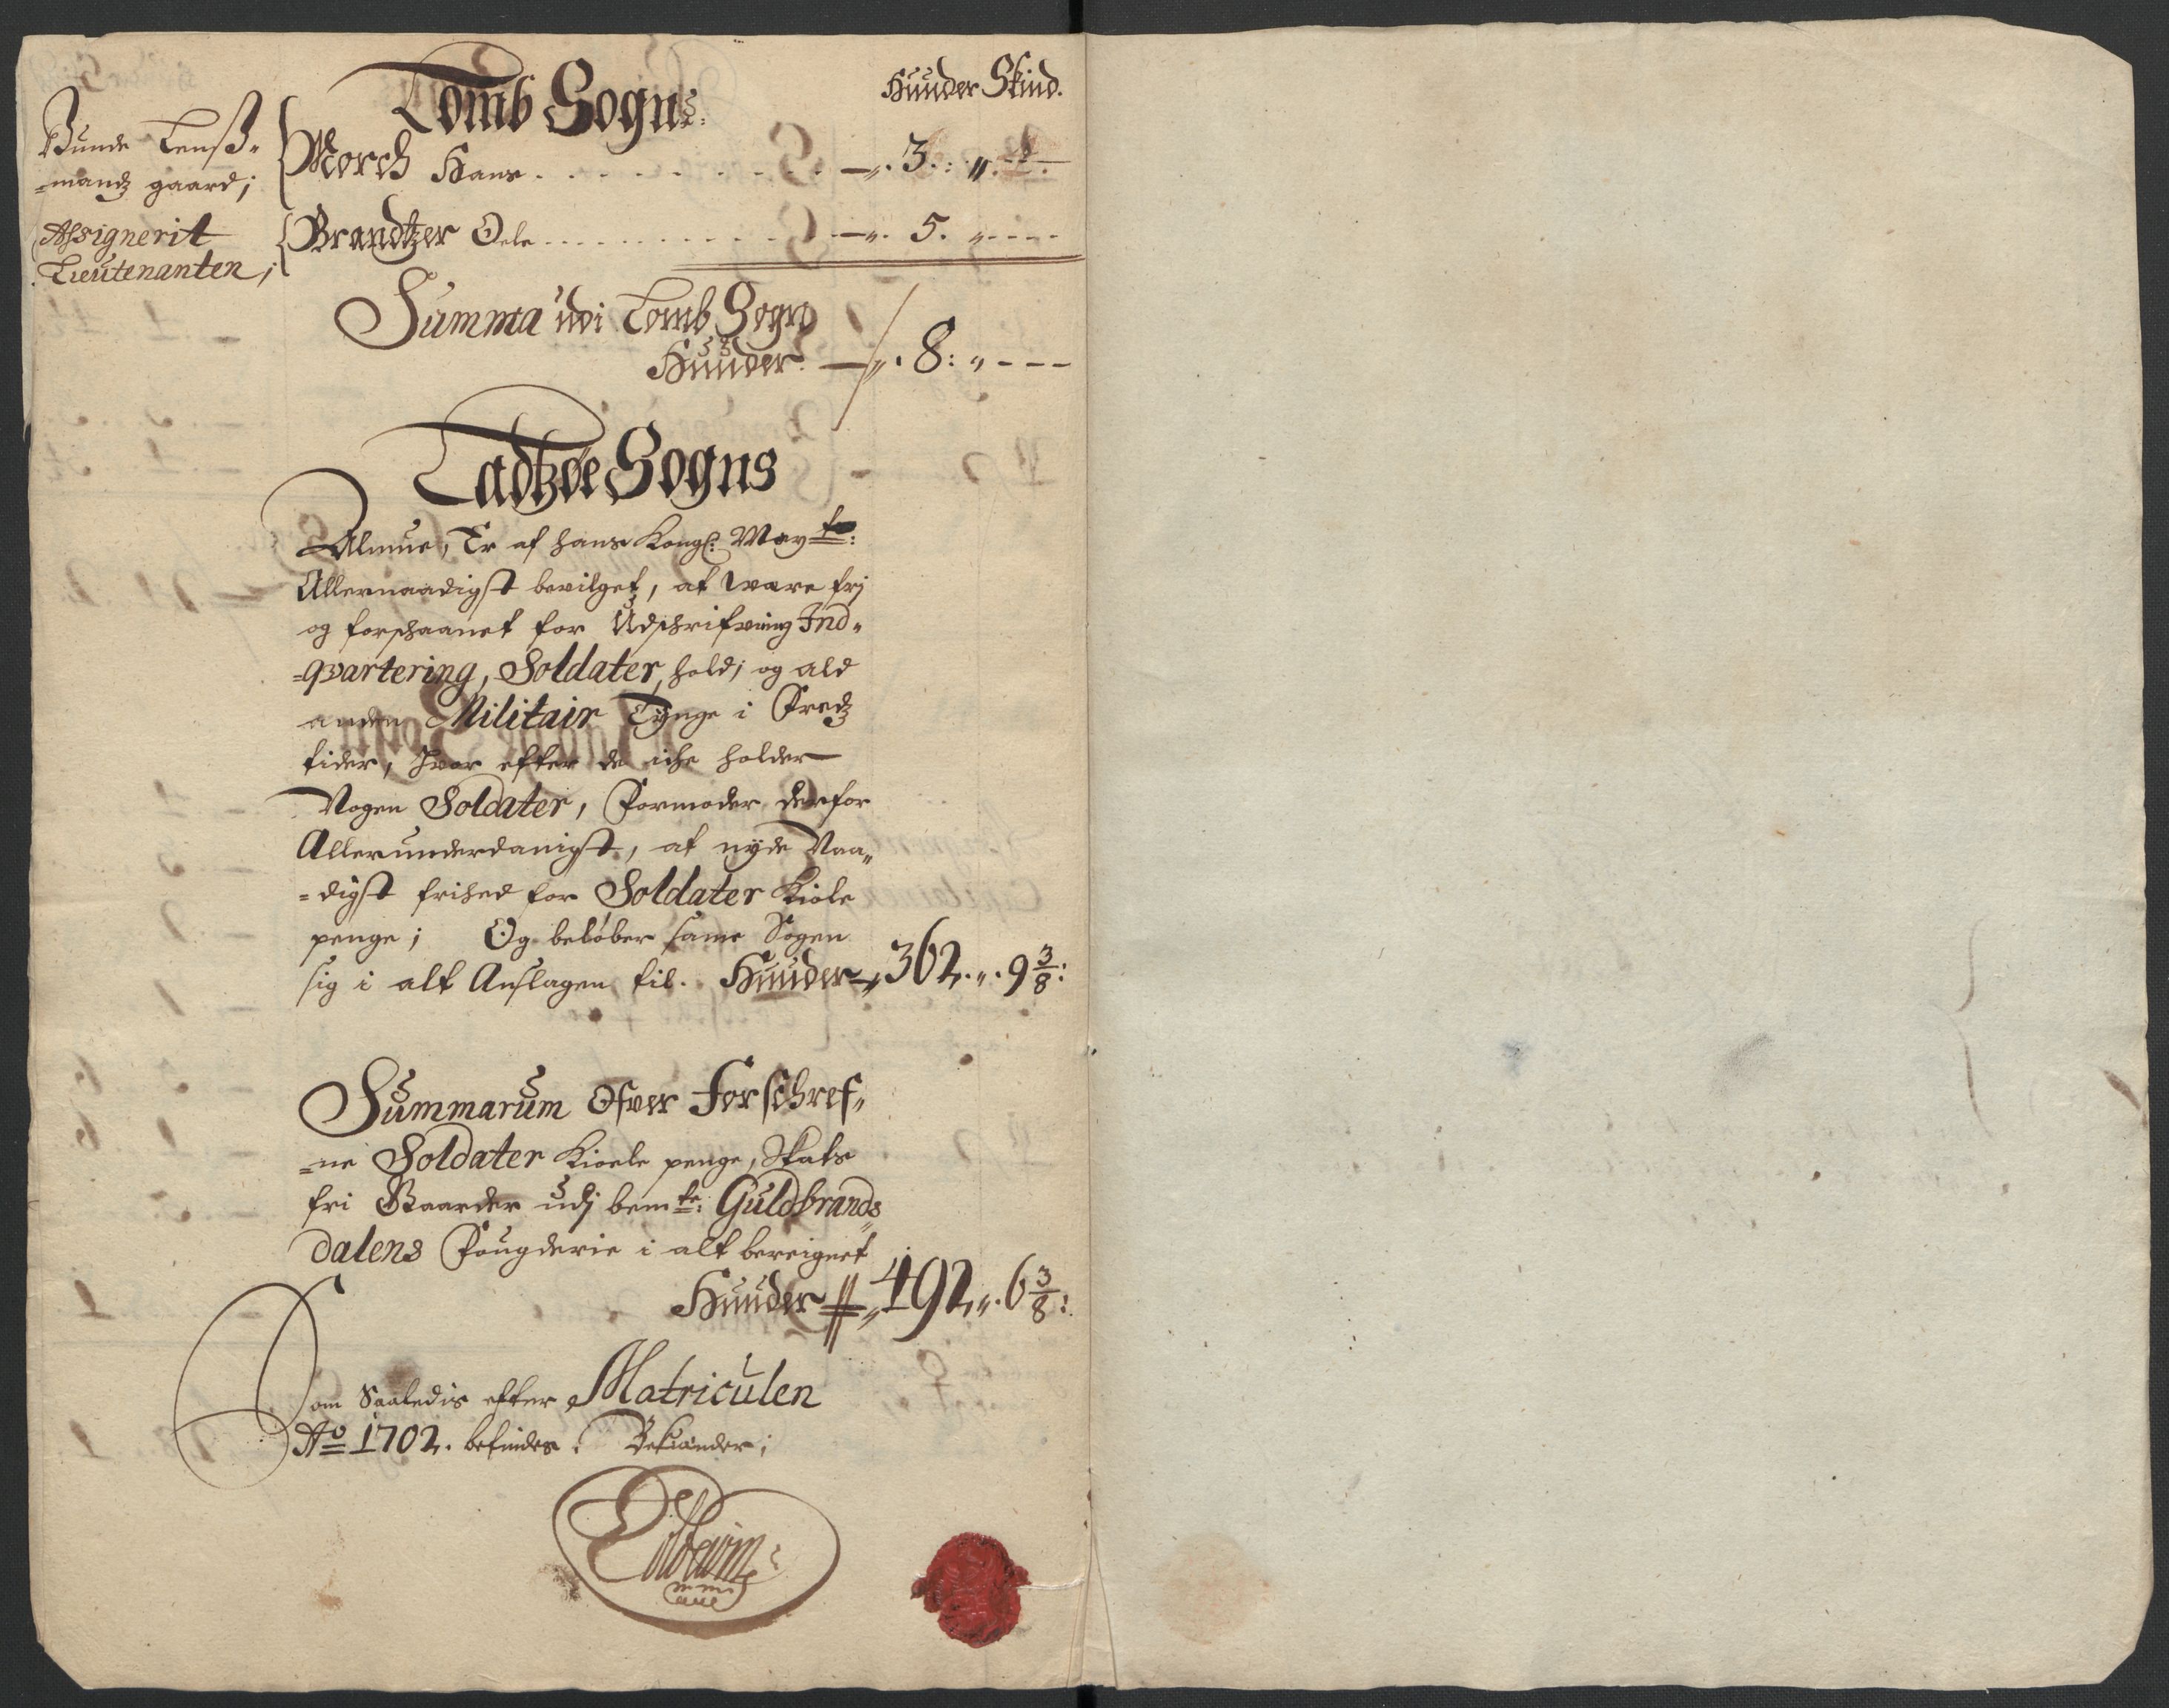 Lomb Sogn:
Huuder Skind.
Bunde Lenß-
=mandz gaard;
Morch Hans . . . . . . . . . . — „ . 3 . : „ .
Assignerit
Lieutenanten;
Brandtzer Oele . . . . . . . . . . — „ . 5 . „ - - - -
Summa udi Lomb Sogn
Huuder. — „ . 8 : „ - - -
Ladtzøe Sogns
Almue, Er af hans Kongl: May te:
Allernaadigst bevilget, at være fri
og forschaanet for Udschrifvning Ind-
=qvartering, Soldater, hold; og ald
anden Militair Tynge i Fredz
tider, Hvor efter de iche holder
Nogen Soldater, Formoder derfor
Allerunderdanigst, at nyde Naa„
=digst frihed for Soldater Kiole
penge; Og beløber same Sogen
sig i alt Anslagen til. Huuder — „ 362 . „ . 9 3/8 :
Summarum Ofver Forschref„
=ne Soldater Kioele penge, Skats
fri Gaarder udj bemte: Guldbrands
dalens Fougderie i alt bereignet
Huuder „ 492 „ . 6 3/8 :
Som Saaledis efter Matriculen
Ao 1702. befindes. Bekiender;